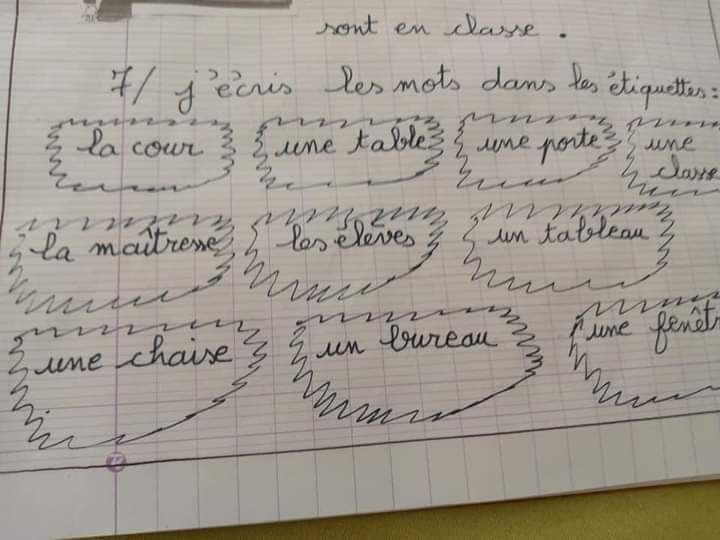 sont en classe .
7/ j'écris les mots dans les étiquettes :
la cour une table une porte une
classe
la maîtresse les élèves un tableau
une chaise un bureau une fenêtr